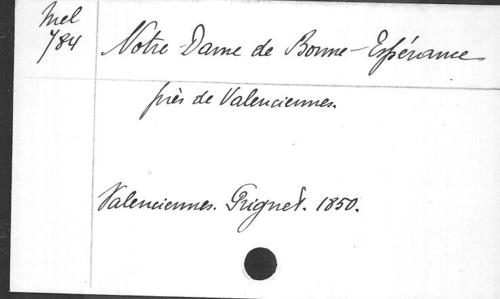 Mel
784
Notre Dame de Bonne-Espérance
près de Valenciennes.
Valenciennes. Prignet. 1850.